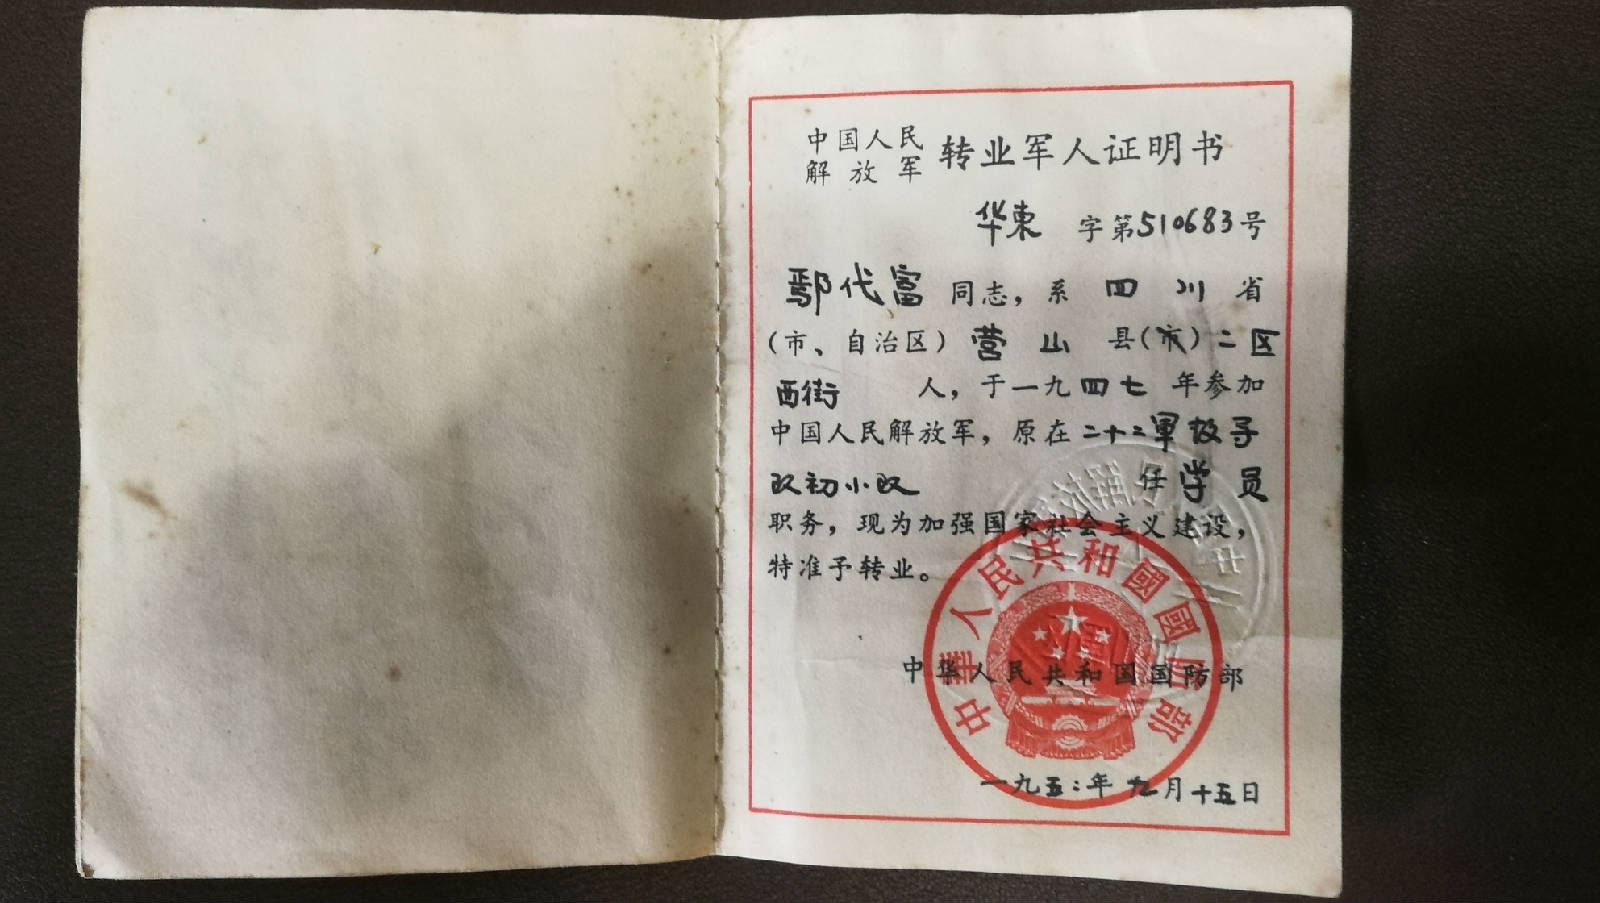 中国人民
解放军 转业军人证明书
华东 字第510683号
鄢代富 同志，系 四川 省
（市、自治区） 营山 县（市） 二区
西街 人，于一九四七年参加
中国人民解放军，原在二十二軍教导
政初小政 任学员
职务，现为加强国家社会主义建设，
特准予转业。
中華人民共和國國防部
中华人民共和国国防部
一九五二年九月十五日